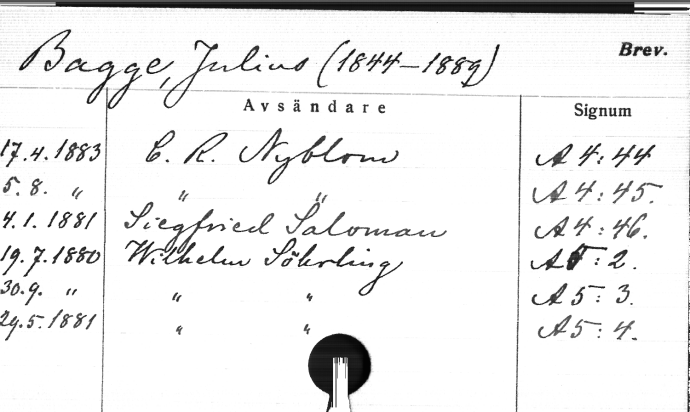 Bagge, Julius (1844–1889) Brev.
Avsändare Signum
17.4.1883 C. R. Nyblom A 4:44
5.8. " " " A 4:45.
4.1.1881 Siegfried Saloman A 4:46.
19.7.1880 Wilhelm Söhrling A 5:2.
30.9. " " " A 5:3.
29.5.1881 " " A 5:4.